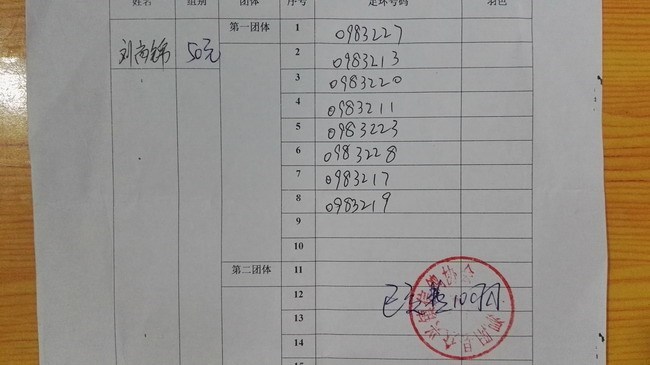 姓名 组别 团体 序号 足环号码 羽色
第一团体 1 0983227
刘 50元 2 0983213
3 0983220
4 0983211
5 0983223
6 0983228
7 0983217
8 0983219
9
10
第二团体 11
12
13
14